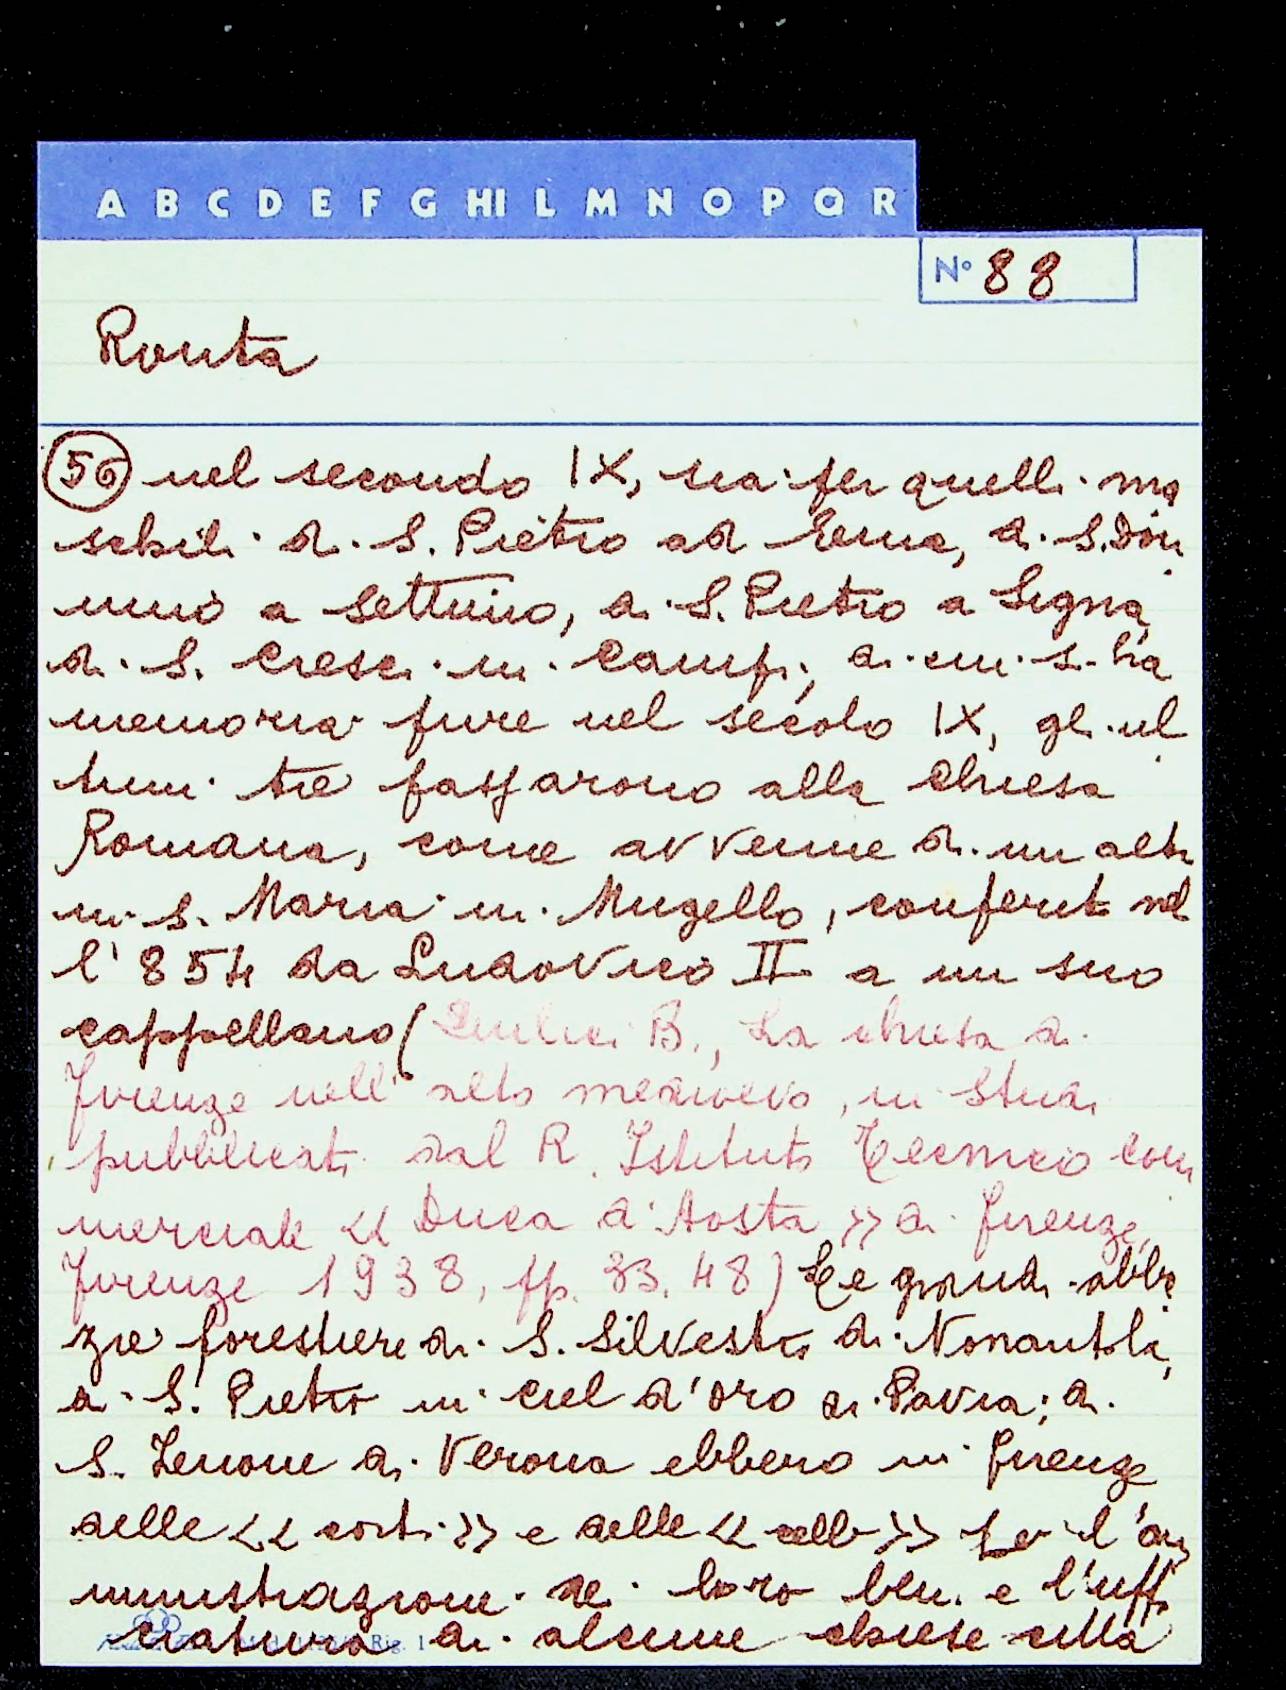 A B C D E F G HI L M N O P Q R
N° 88
Ronta
56 nel secondo IX, sia per quelli ma
schili di S. Pietro ad Ema, di S. Don
nino a Settimo, di S. Pietro a Signa,
di S. Cresci in Campi, di cui si ha
memoria pure nel secolo IX, gli ul
timi tre passarono alla Chiesa
Romana, come avvenne di un altro
in S. Maria in Mugello, conferito nel
l'854 da Ludovico II a un suo
cappellano ( B., La chiesa di
Firenze nell'alto medioevo, in Studi
pubblicati dal R. Istituto Tecnico Com
merciale << Duca d'Aosta >> di Firenze,
Firenze 1938, pp. 33. 48) Le grandi abba
zie forestiere di S. Silvestro di Nonantola,
di S. Pietro in ciel d'oro di Pavia; di
S. Zenone di Verona ebbero in Firenze
delle << corti >> e delle << celle >> per l'am
ministrazione dei loro beni e l'uffi
ciatura di alcune chiese città